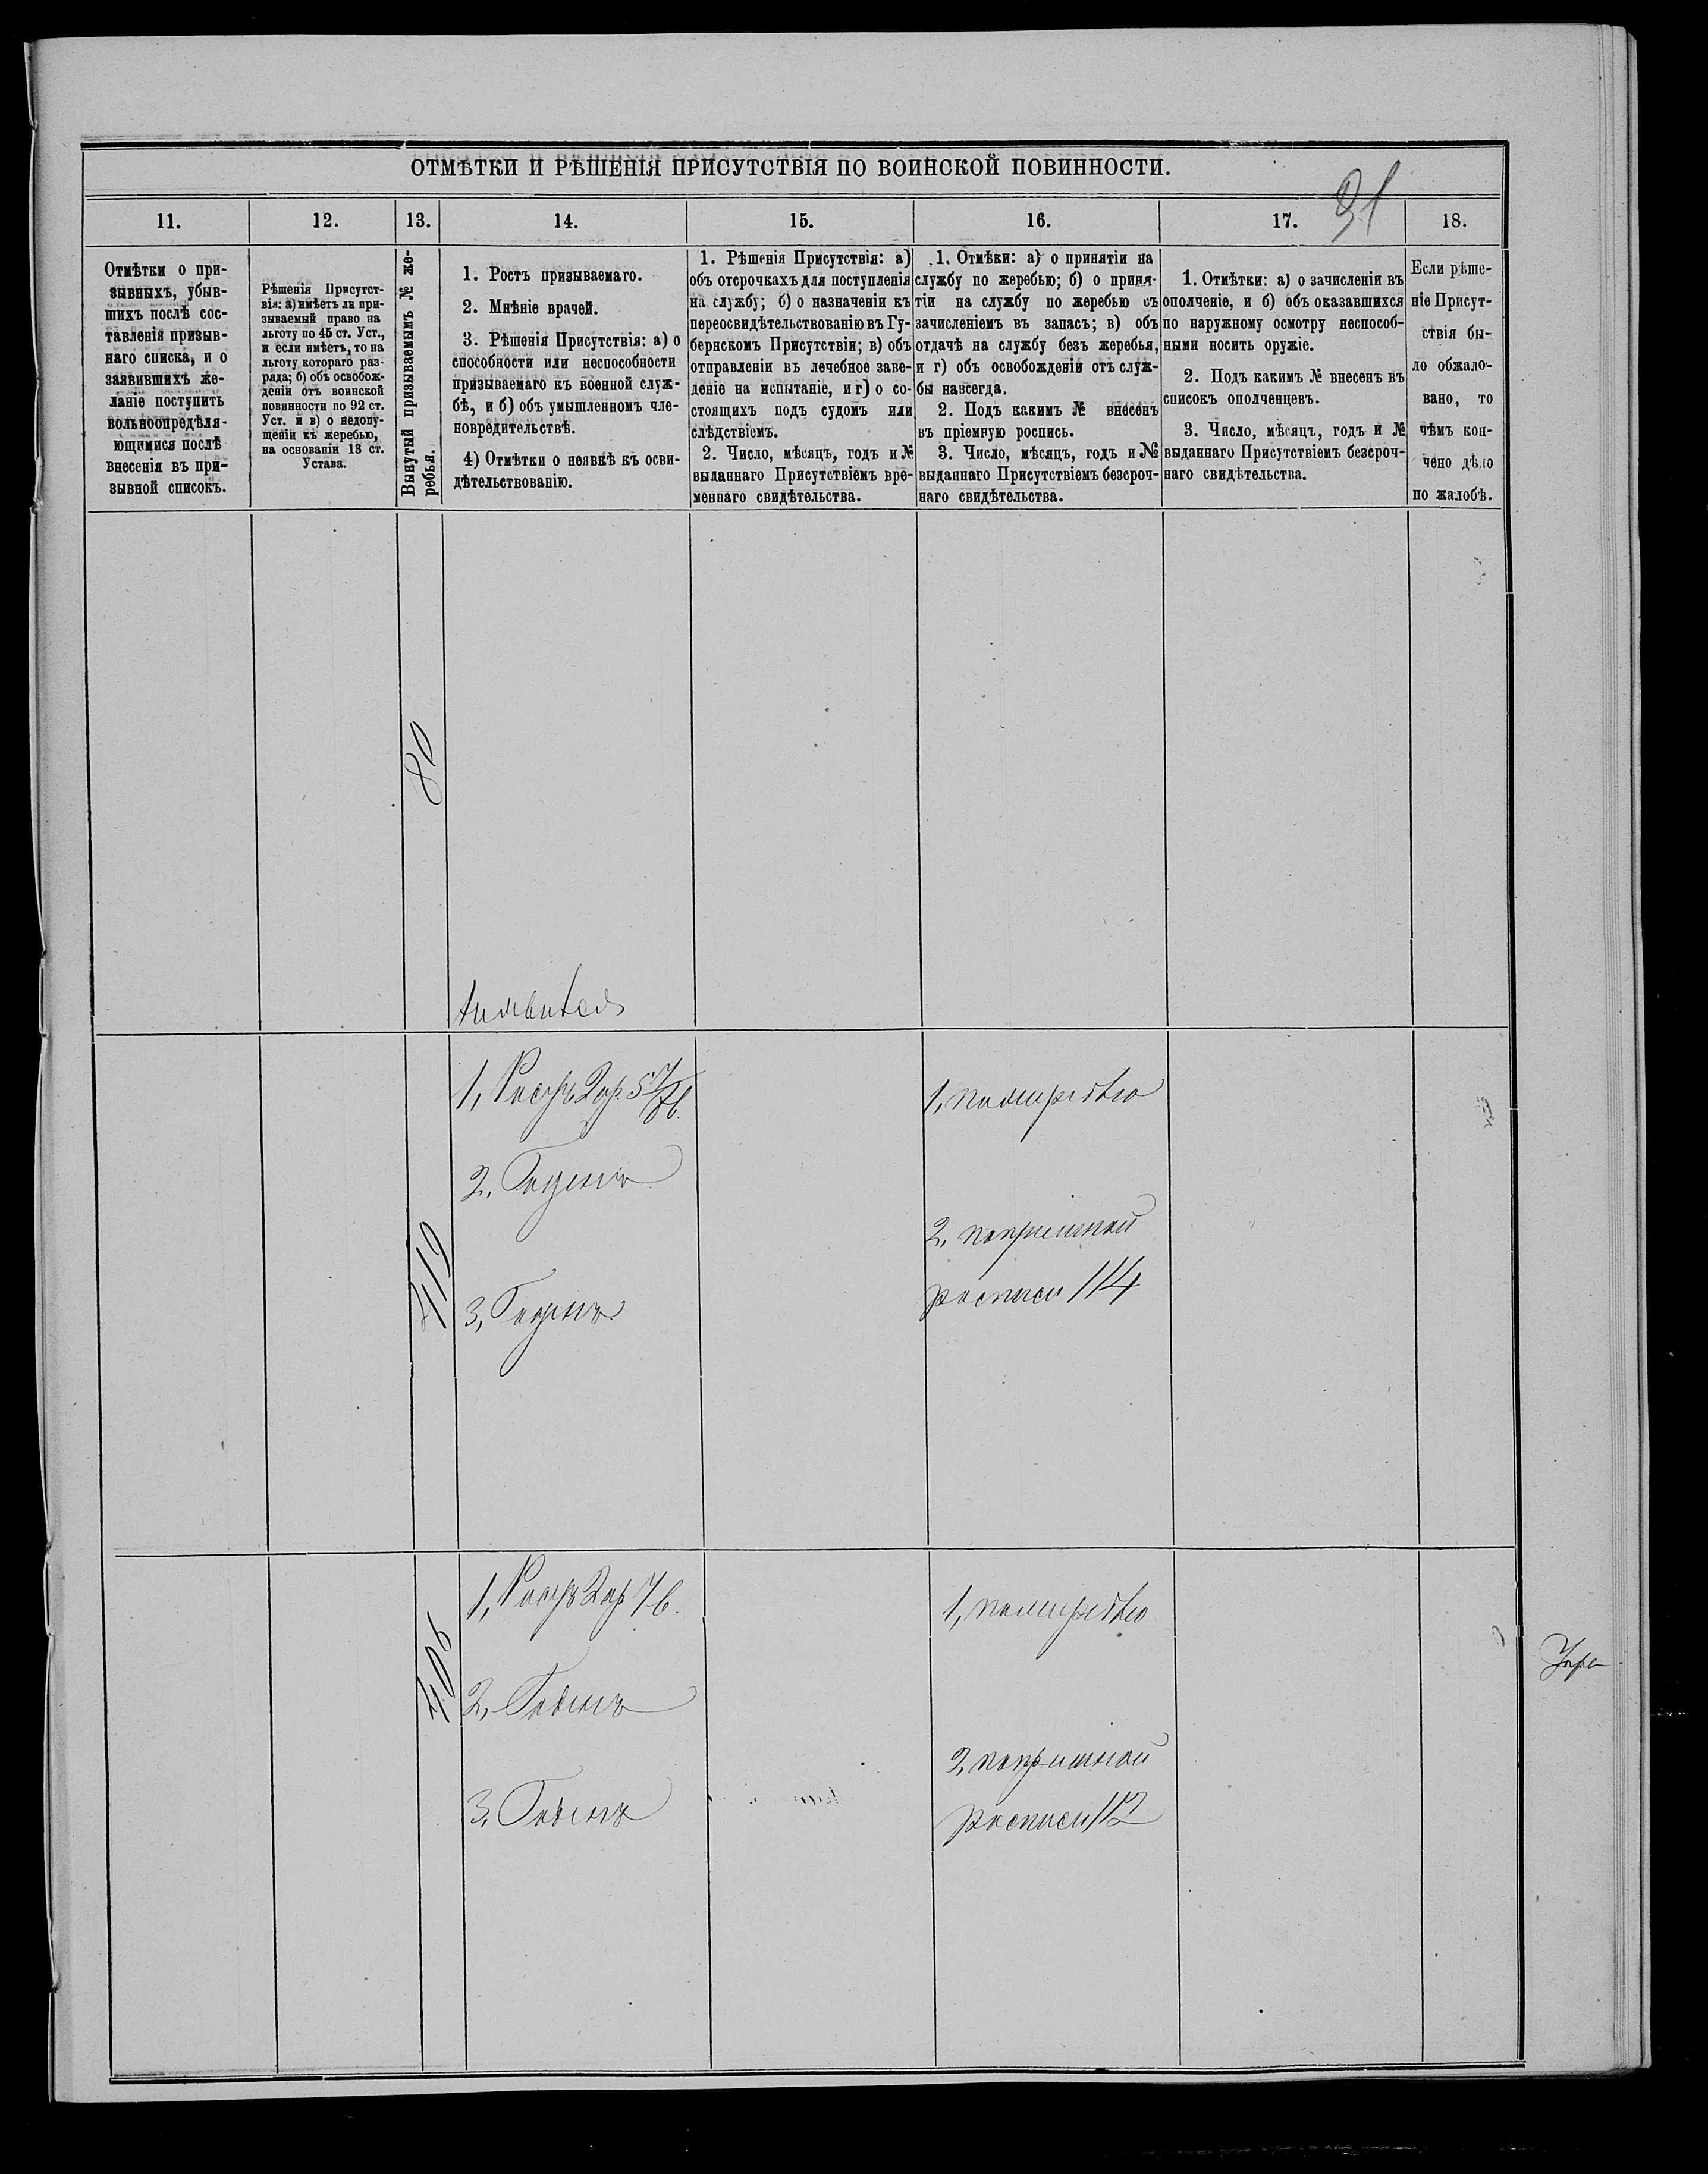 ОТМѢТКИ И РѢШЕНІЯ ПРИСУТСТВІЯ ПО ВОИНСКОЙ ПОВИННОСТИ.
31
11.
12.
13.
14.
15.
16.
17.
18.
Отмѣтки о при-
зывныхъ, убыв-
шихъ послѣ сос-
тавленія призыв-
наго списка, и о
заявившихъ же-
ланіе поступить
вольноопредѣля-
ющимися послѣ
внесенія въ при-
зывной списокъ.
Рѣшенія Присутст-
вія: а) имѣетъ ли при-
зываемый право на
льготу по 45 ст. Уст.,
и если имѣетъ, то на
льготу котораго раз-
ряда; б) объ освобож-
деніи отъ воинской
повинности по 92 ст.
Уст. и в) о недопу-
щеніи къ жеребью,
на основаніи 13 ст.
Устава.
Вынутый призываемымъ № же-
ребья.
1. Ростъ призываемаго.
2. Мнѣніе врачей.
3. Рѣшенія Присутствія: а) о
способности или неспособности
призываемаго къ военной служ-
бѣ, и б) объ умышленномъ чле-
новредительствѣ.
4) Отмѣтки о неявкѣ къ осви-
дѣтельствованію.
1. Рѣшенія Присутствія: а)
объ отсрочкахъ для поступленія
на службу; б) о назначеніи къ
переосвидѣтельствованію въ Гу-
бернскомъ Присутствіи; в) объ
отправленіи въ лечебное заве-
деніе на испытаніе, и г) о со-
стоящихъ подъ судомъ или
слѣдствіемъ.
2. Число, мѣсяцъ, годъ и №
выданнаго Присутствіемъ вре-
меннаго свидѣтельства.
1. Отмѣки: а) о принятіи на
службу по жеребью; б) о приня-
тіи на службу по жеребью съ
зачисленіемъ въ запасъ; в) объ
отдачѣ на службу безъ жеребья,
и г) объ освобожденіи отъ служ-
бы навсегда.
2. Подъ какимъ № внесенъ
въ пріемную роспись.
3. Число, мѣсяцъ, годъ и №
выданнаго Присутствіемъ безсроч-
наго свидѣтельства.
1. Отмѣтки: а) о зачисленіи въ
ополченіе, и б) объ оказавшихся
по наружному осмотру неспособ-
ными носить оружіе.
2. Подъ какимъ № внесенъ въ
списокъ ополченцевъ.
3. Число, мѣсяцъ, годъ и №
выданнаго Присутствіемъ безсроч-
наго свидѣтельства.
Если рѣше-
ніе Присут-
ствія бы-
ло обжало-
вано, то
чѣмъ кон-
чено дѣло
по жалобѣ.
80
1, Ростъ 2 ар. 5 7/8 в.
2, Годенъ
419
3, Годенъ
1, по жеребью
2, по приемной
росписи 114
1, Ростъ 2 ар 7 в.
406
2, Годенъ
3, Годенъ
1, по жеребью
2, по приемной
росписи 112